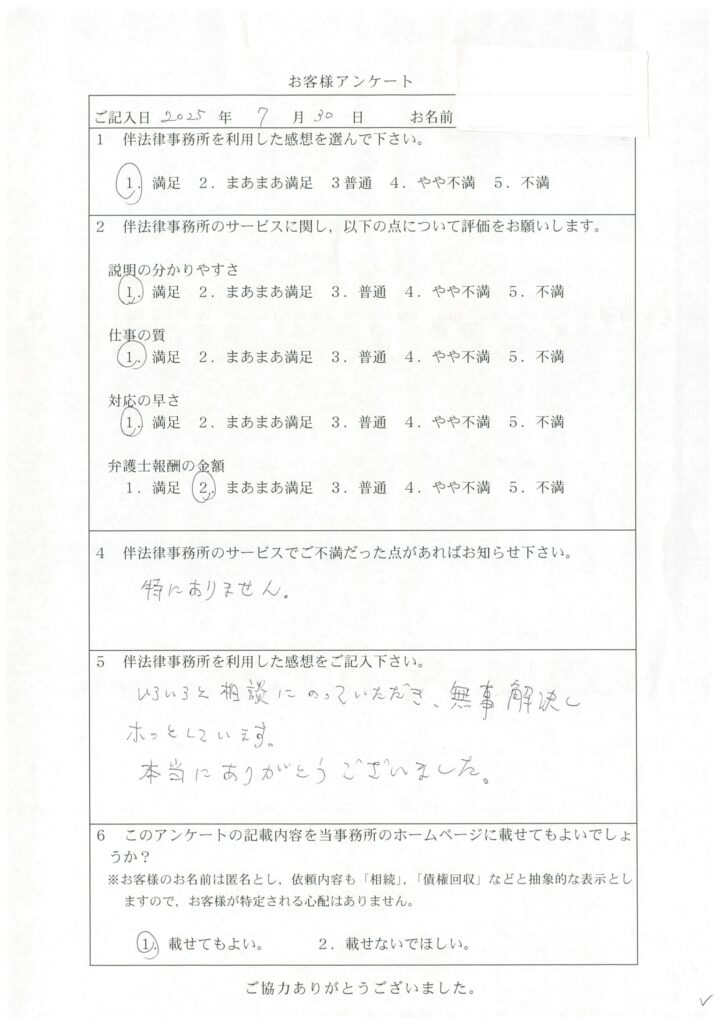 お客様アンケート
ご記入日 2025 年 7 月 30 日 お名前
1 伴法律事務所を利用した感想を選んで下さい。
1. 満足 2. まあまあ満足 3普通 4. やや不満 5. 不満
2 伴法律事務所のサービスに関し,以下の点について評価をお願いします。
説明の分かりやすさ
1. 満足 2. まあまあ満足 3. 普通 4. やや不満 5. 不満
仕事の質
1. 満足 2. まあまあ満足 3. 普通 4. やや不満 5. 不満
対応の早さ
1. 満足 2. まあまあ満足 3. 普通 4. やや不満 5. 不満
弁護士報酬の金額
1. 満足 2. まあまあ満足 3. 普通 4. やや不満 5. 不満
4 伴法律事務所のサービスでご不満だった点があればお知らせ下さい。
特にありません。
5 伴法律事務所を利用した感想をご記入下さい。
いろいろと相談にのっていただき、無事解決し
ホッとしています。
本当にありがとうございました。
6 このアンケートの記載内容を当事務所のホームページに載せてもよいでしょ
うか?
※お客様のお名前は匿名とし,依頼内容も「相続」,「債権回収」などと抽象的な表示とし
ますので,お客様が特定される心配はありません。
1. 載せてもよい。 2. 載せないでほしい。
ご協力ありがとうございました。